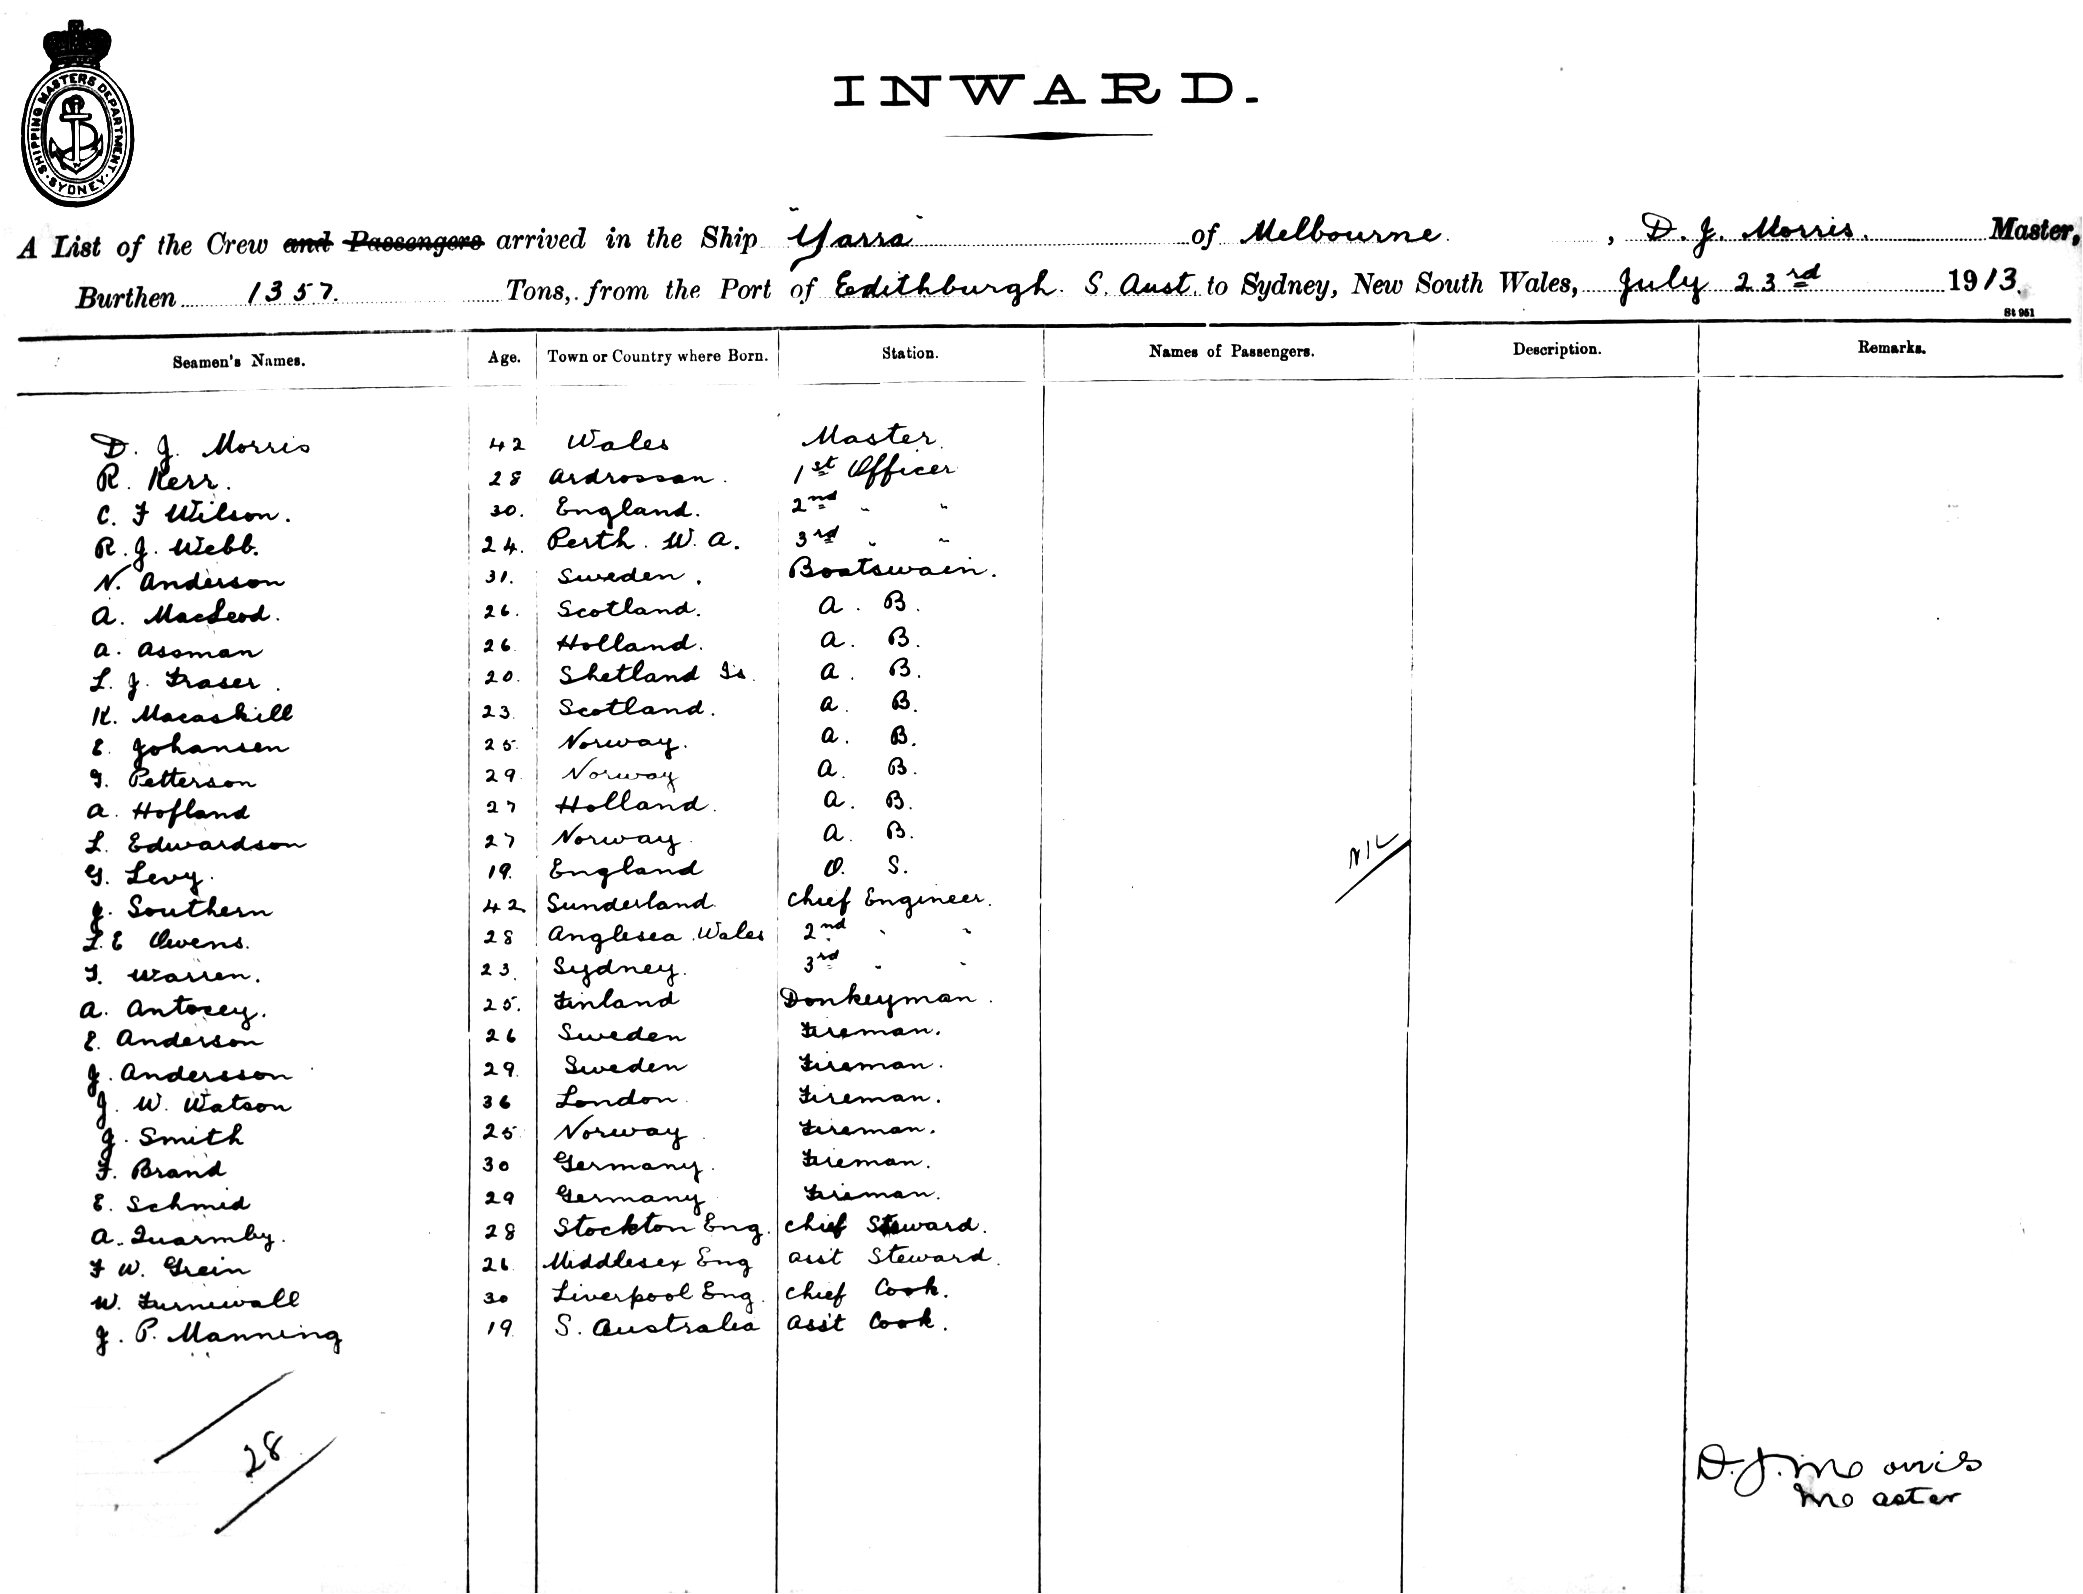 SHIPPING MASTERS DEPARTMENT. SYDNEY.
INWARD.
A List of the Crew and Passengers arrived in the Ship "Yarra" of Melbourne, D. J. Morris. Master,
Burthen 1357. Tons, from the Port of Edithburgh S. Aust. to Sydney, New South Wales, July 23rd 1913.
St 951
Seamen's Names. Age. Town or Country where Born. Station. Names of Passengers. Description. Remarks.
D. J. Morris 42 Wales Master.
R. Kerr. 28 Ardrossan. 1st Officer
C. F Wilson. 30. England. 2nd " "
R. J. Webb. 24. Perth. W. A. 3rd " "
N. Anderson 31. Sweden. Boatswain.
A. MacLeod. 26. Scotland. A. B.
A. Assman 26 Holland. A. B.
L. J. Fraser. 20. Shetland Is. A. B.
K. Macaskill 23 Scotland. A. B.
E. Johansen 25 Norway. A. B.
I. Petterson 29 Norway A. B.
A. Hofland 27 Holland. A. B.
L. Edwardson 27 Norway. A. B.
G. Levy. 19. England O. S.
J. Southern 42 Sunderland. Chief Engineer.
L. E Owens. 28 Anglesea Wales 2nd " "
T. Warren. 23. Sydney. 3rd " "
A. Antocey. 25. Finland Donkeyman.
E. Anderson 26 Sweden Fireman.
J. Andersson 29 Sweden Fireman.
J. W. Watson 36 London. Fireman.
J. Smith 25 Norway. Fireman.
F. Brand 30 Germany. Fireman.
E. Schmid 29 Germany Fireman.
A. Quarmby. 28 Stockton Eng. Chief Steward.
F W. Grein 26 Middlesex Eng Asst Steward.
W. Furnivall 30 Liverpool Eng. Chief Cook.
J. P. Manning 19 S. Australia Asst Cook.
NIL
28
D. J. Morris
Master